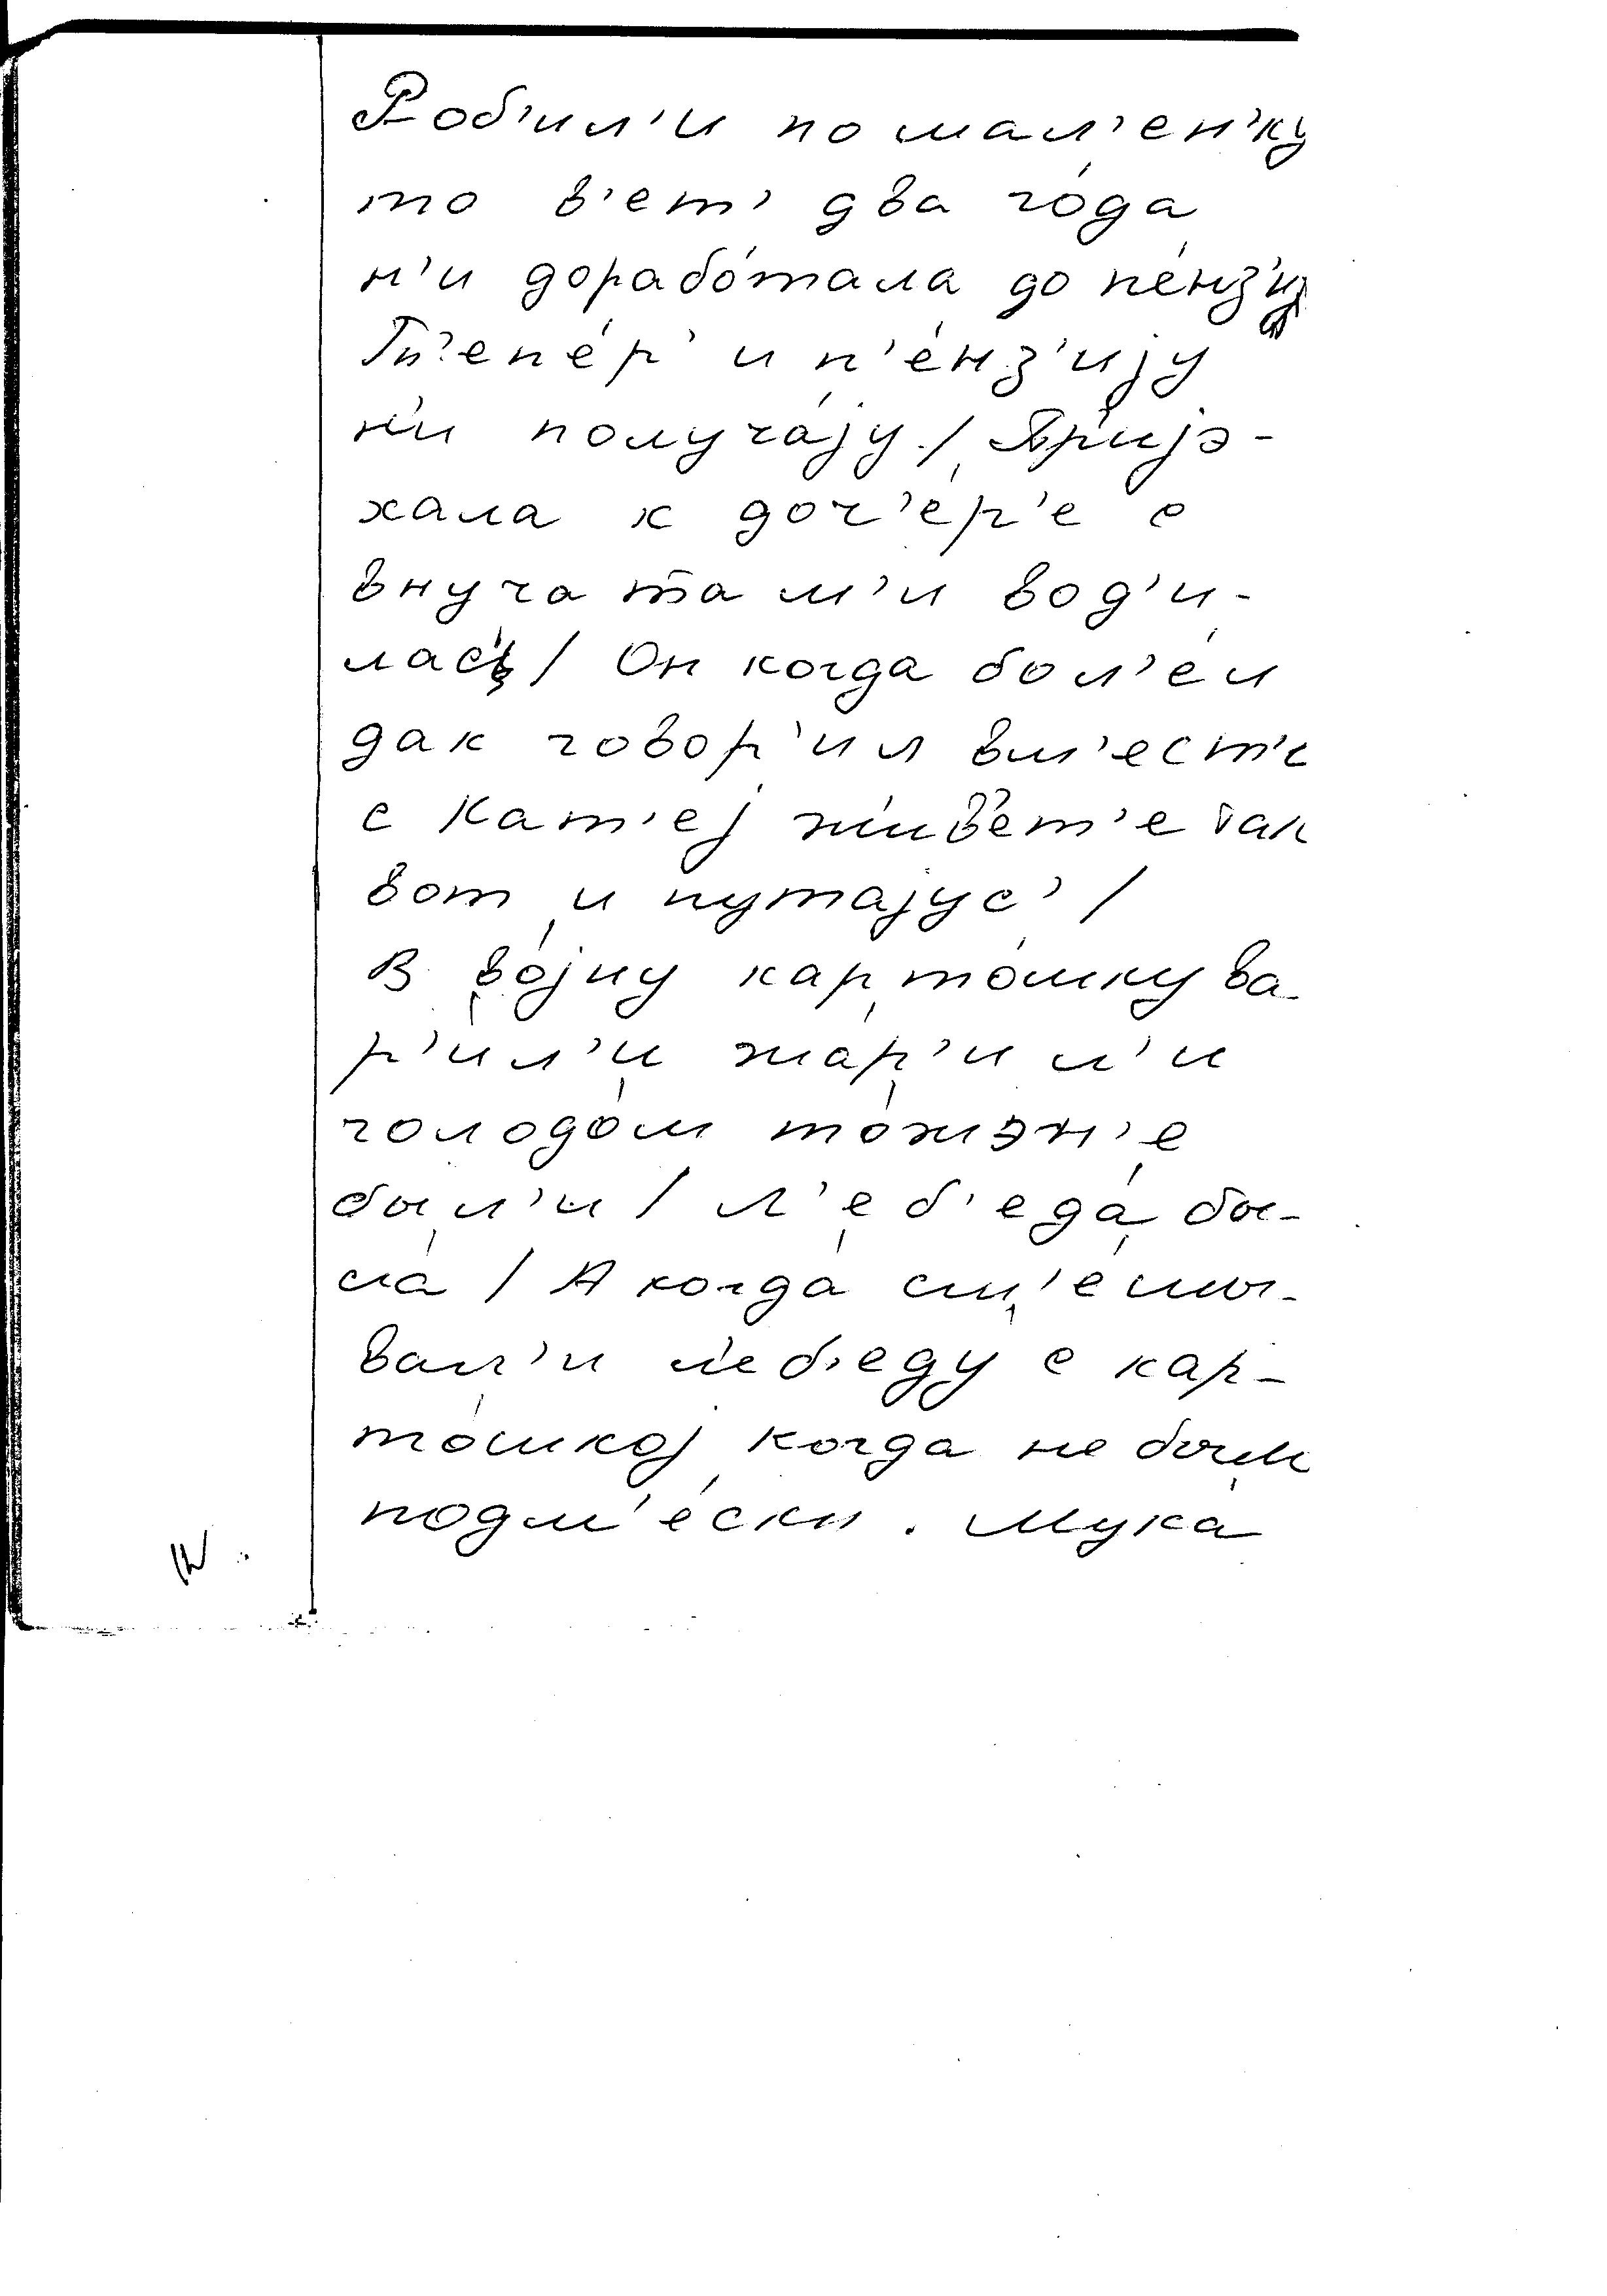 Роб'ил'и помал'ен'ку
то в'ет' два го́да
н'и дорабо́тала до пе́нз'иј
Т'епе́р' и п'е́нз'ију
н'и получа́ју / Пр'ијэ-
хала к доч'е́р'е с
внучатам'и вод'и-
лас' / Он когда бол'е́л
дак говор'ил вм'ест'е
с Кат'еј жив'ет'е так
вот и путајус' /
В во́јну карто́шку ва-
р'и́л'и жа́р'ил'и
голодо́м то́жэ н'е
был'и / Л'еб'еда́ бы-
ла́ / А когда́ см'е́шы-
вал'и л'еб'еду с кар-
то́шкој когда не было
подм'е́ски. Мука́